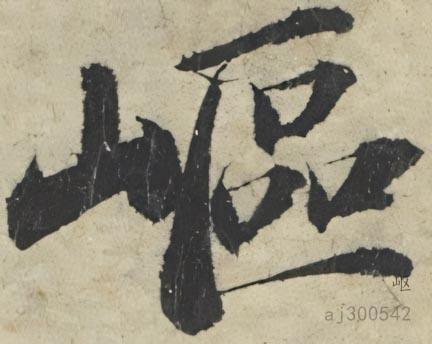 嶇
岖
aj300542